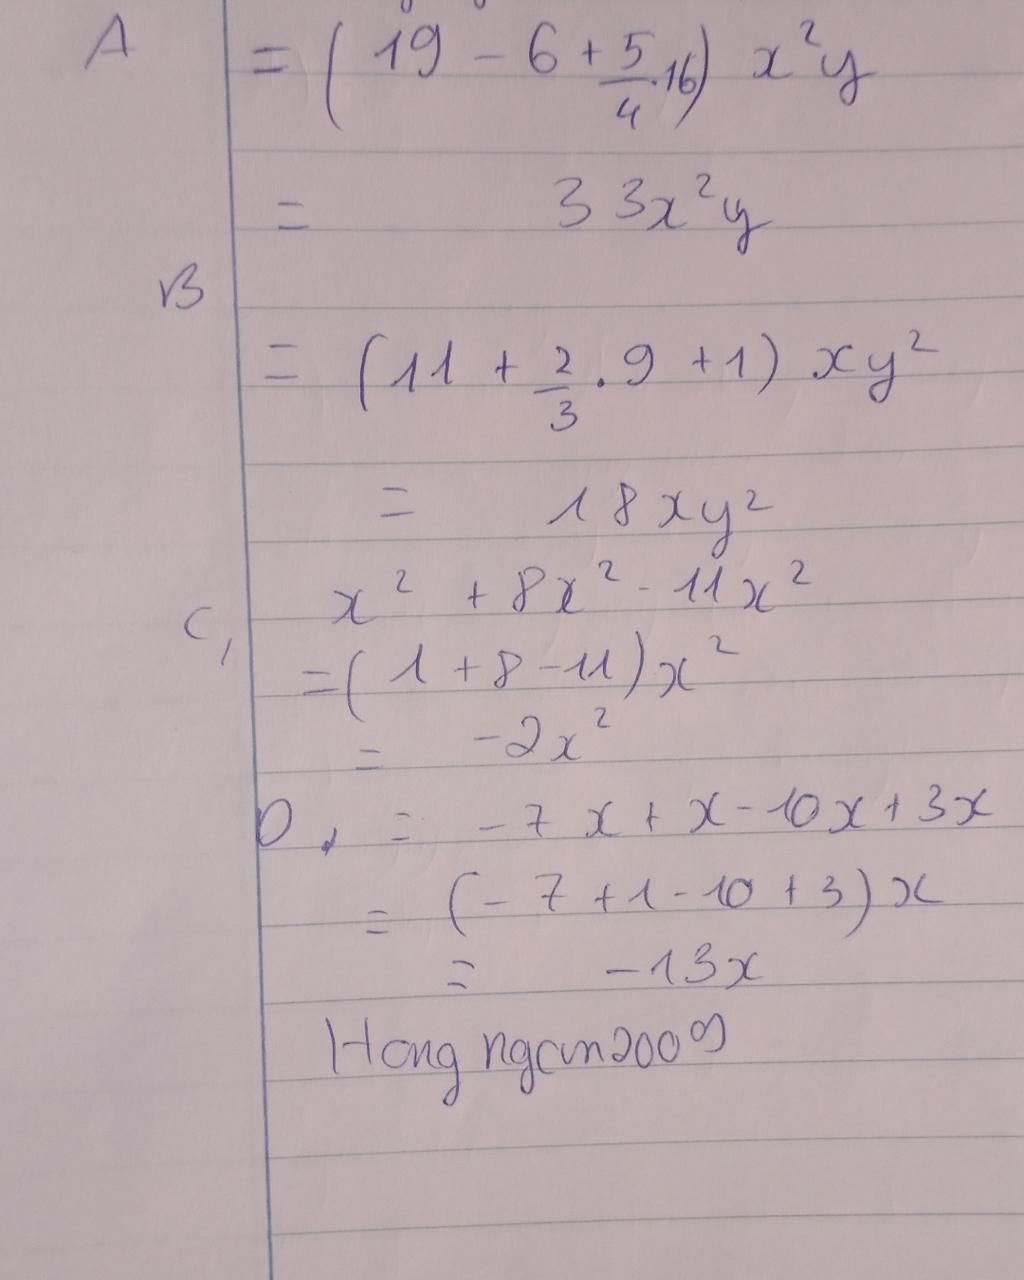 A = (19 - 6 + 5/4 . 16) x²y
= 33x²y
B
= (11 + 2/3 . 9 + 1) xy²
= 18xy²
x² + 8x² - 11x²
C,
= (1 + 8 - 11) x²
= -2x²
D, = -7x + x - 10x + 3x
= (-7 + 1 - 10 + 3) x
= -13x
Hong 2009